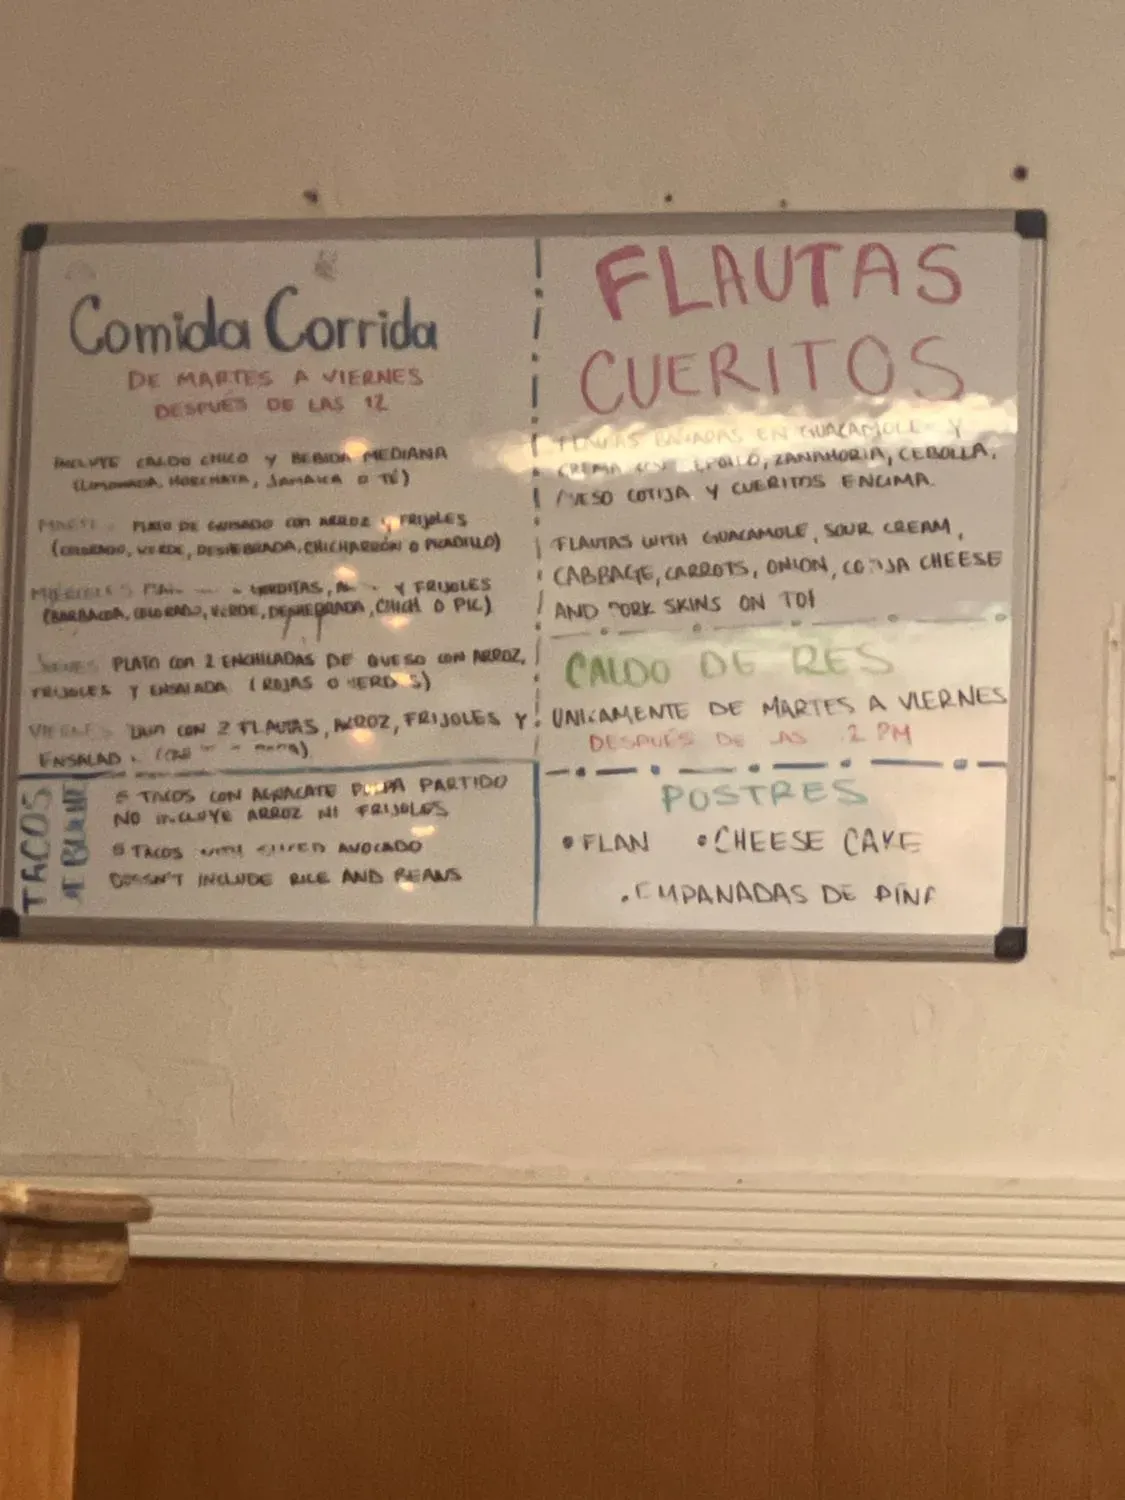 Comida Corrida
DE MARTES A VIERNES
DESPUÉS DE LAS 12
INCLUYE CALDO CHICO Y BEBIDA MEDIANA
(LIMONADA, HORCHATA, JAMAICA O TÉ)
PLATO DE GUISADO CON ARROZ Y FRIJOLES
(COLORADO, VERDE, DESHEBRADA, CHICHARRÓN O PICADILLO)
MIERCOLES GORDITAS, Y FRIJOLES
(BARBACOA, COLORADO, VERDE, DESHEBRADA, CHICH O PIC)
JUEVES PLATO CON 2 ENCHILADAS DE QUESO CON ARROZ,
FRIJOLES Y ENSALADA (ROJAS O VERDES)
VIERNES CON 2 FLAUTAS, ARROZ, FRIJOLES Y
ENSALADA
TACOS
DE
5 TACOS CON AGUACATE PARTIDO
NO INCLUYE ARROZ NI FRIJOLES
5 TACOS WITH SLICED AVOCADO
DOESN'T INCLUDE RICE AND BEANS
FLAUTAS
CUERITOS
FLAUTAS BAÑADAS EN GUACAMOLE Y
CREMA CON REPOLLO, ZANAHORIA, CEBOLLA,
QUESO COTIJA Y CUERITOS ENCIMA.
FLAUTAS WITH GUACAMOLE, SOUR CREAM,
CABBAGE, CARROTS, ONION, COTIJA CHEESE
AND PORK SKINS ON TOP
CALDO DE RES
UNICAMENTE DE MARTES A VIERNES
DESPUÉS DE LAS 12 PM
POSTRES
• FLAN • CHEESE CAKE
. EMPANADAS DE PIÑA